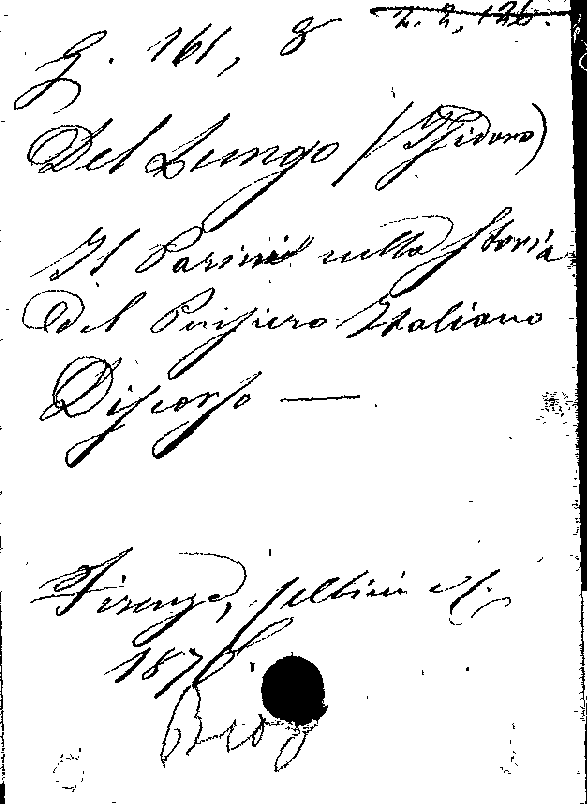 G. 161, 8 2.2,126.
Del Lungo (Isidoro)
Il Parini nella Storia
del Pensiero Italiano
Discorso —
Firenze, Cellini e C.
Biog